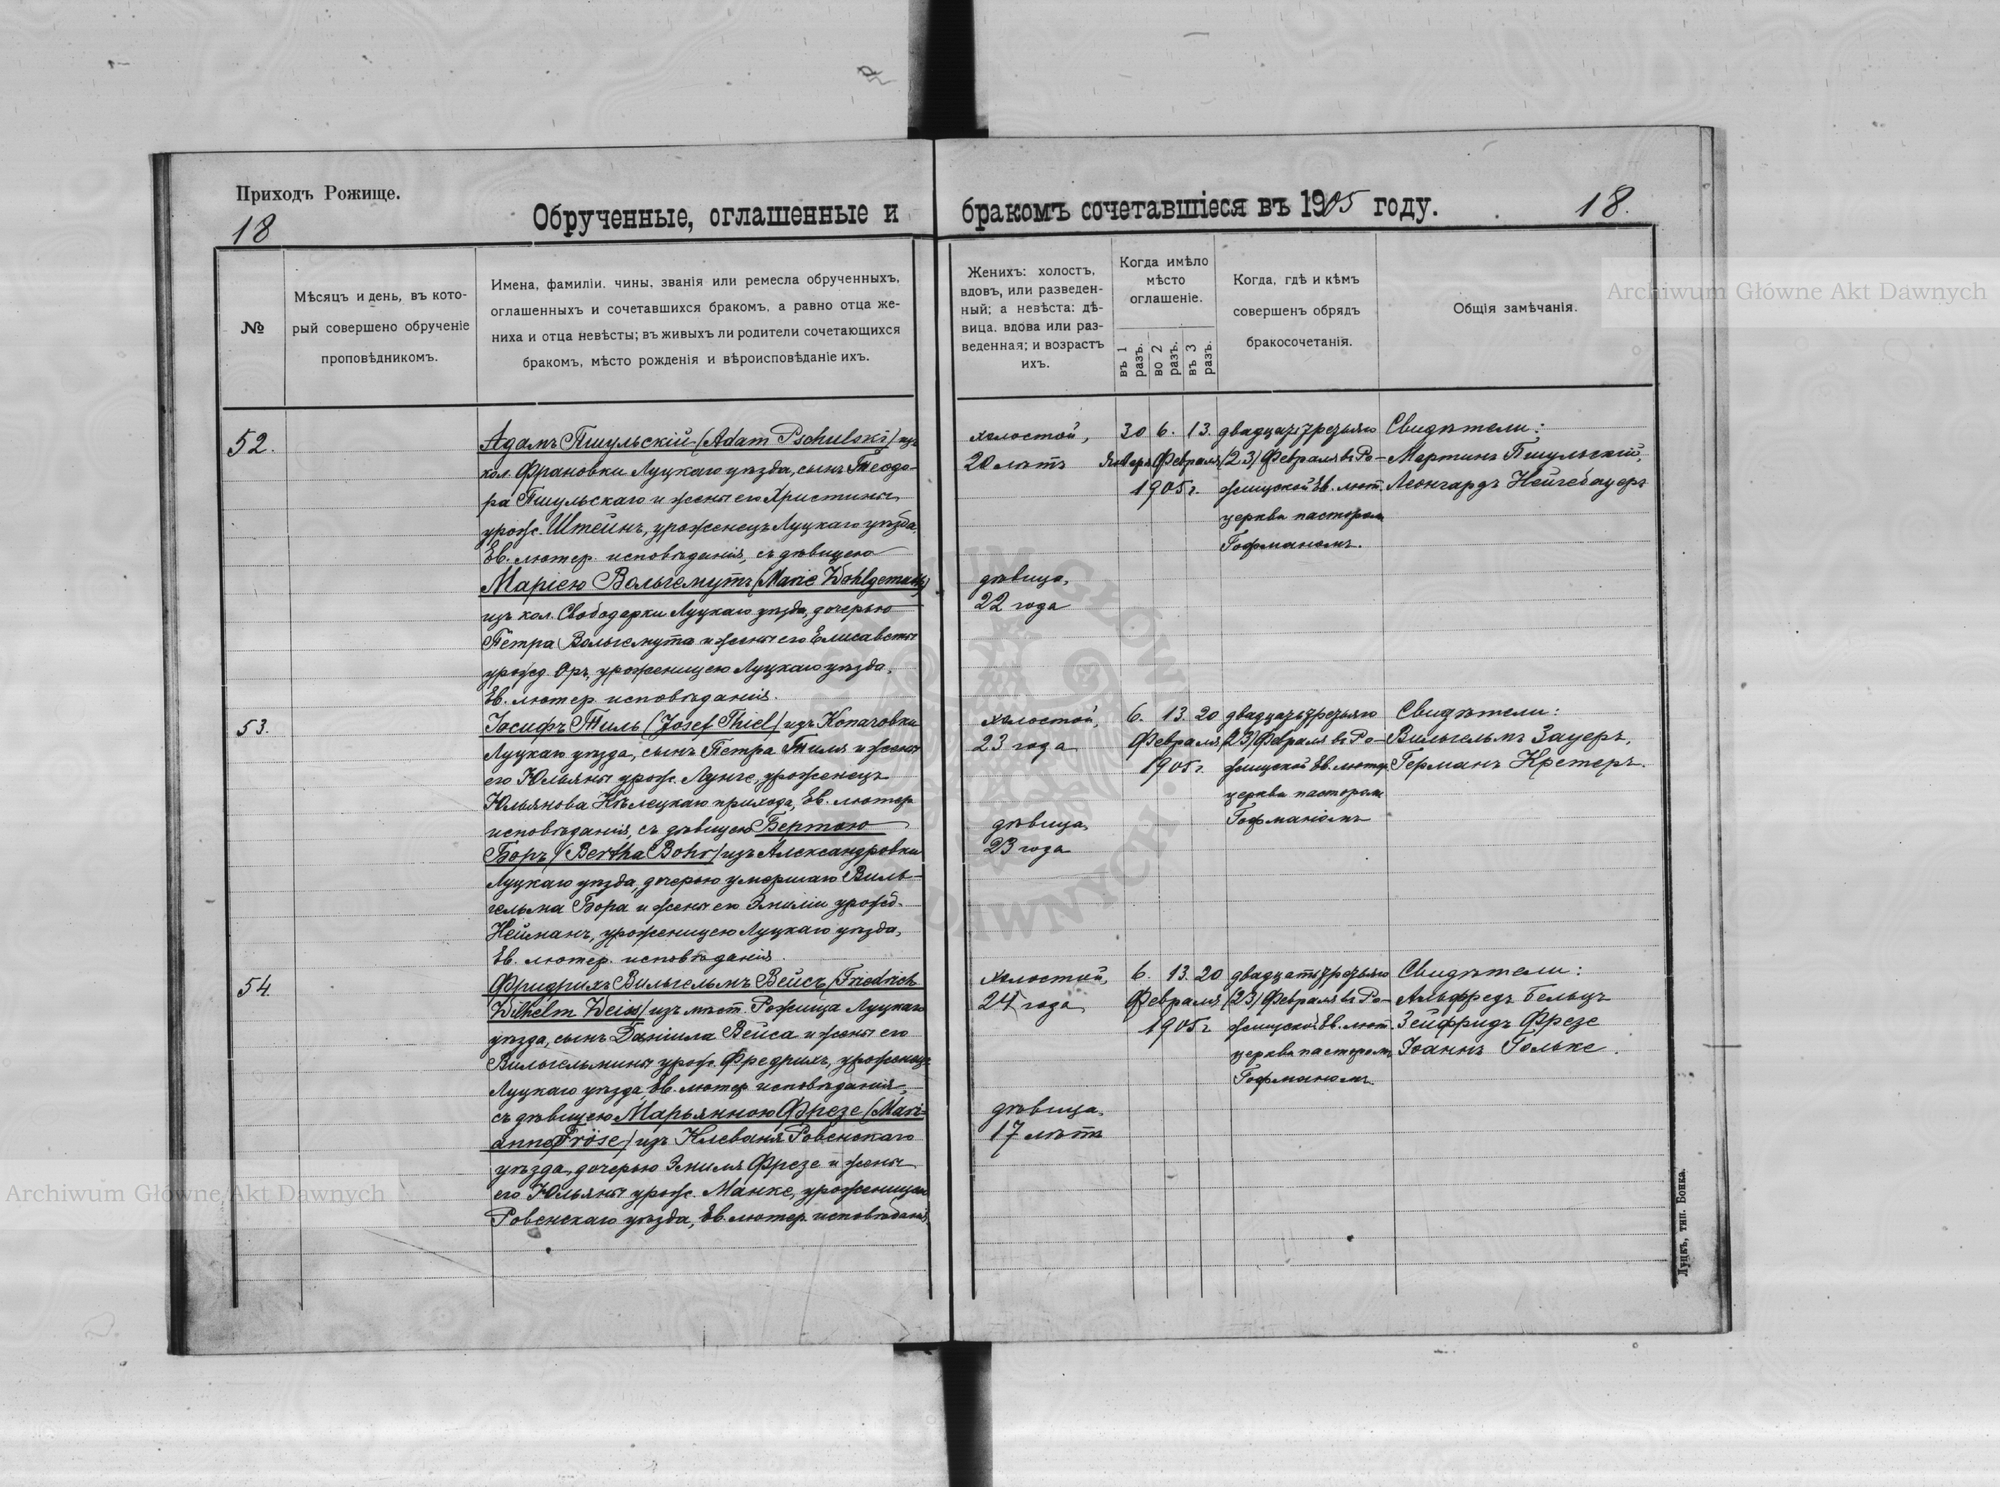 Приходъ Рожище.
18
Обрученные, оглашенные и бракомъ сочетавшіеся въ 1905 году.
18.
№
Мѣсяцъ и день, въ кото-
рый совершено обрученіе
проповѣдникомъ.
Имена, фамиліи. чины, званія или ремесла обрученныхъ,
оглашенныхъ и сочетавшихся бракомъ, а равно отца же-
ниха и отца невѣсты; въ живыхъ ли родители сочетающихся
бракомъ, мѣсто рожденія и вѣроисповѣданіе ихъ.
Женихъ: холостъ,
вдовъ, или разведен-
ный; а невѣста: дѣ-
вица, вдова или раз-
веденная; и возрастъ
ихъ.
Когда имѣло
мѣсто
оглашеніе.
въ 1 разъ.
во 2 разъ.
въ 3 разъ.
Когда, гдѣ и кѣмъ
совершенъ обрядъ
бракосочетанія.
Общія замѣчанія.
52.
Адамъ Пшульскій (Adam Pschulski) изъ
кол. Франовки Луцкаго уѣзда, сынъ Теодо-
ра Пшульскаго и жены его Христины
урож. Штейнъ, уроженецъ Луцкаго уѣзда,
Ев. лютер. исповѣданія, съ дѣвицею
Маріею Вольгемутъ (Marie Wohlgemuth)
изъ кол. Свободарки Луцкаго уѣзда, дочерью
Петра Вольгемута и жены его Елисаветы
урожд. Оръ, уроженицею Луцкаго уѣзда,
Ев. лютер. исповѣданія.
холостой,
20 лѣтъ
дѣвица,
22 года
30 6. 13.
Января Февраля
1905 г.
двадцать третьяго
(23) Февраля въ Ро-
жищской Ев. лют.
церкви пасторомъ
Гофманомъ.
Свидѣтели:
Мартинъ Пшульскій,
Леонгардъ Нейгебауеръ
53.
Іосифъ Тиль (Josef Thiel) изъ Копачовки
Луцкаго уѣзда, сынъ Петра Тиля и жены
его Юльяны урож. Лунге, уроженецъ
Юльянова Кѣлецкаго прихода, Ев. лютер.
исповѣданія, съ дѣвицею Бертою
Боръ (Bertha Bohr) изъ Александровки
Луцкаго уѣзда, дочерью умершаго Виль-
гельма Бора и жены его Эмиліи урожд.
Нейманъ, уроженицею Луцкаго уѣзда,
Ев. лютер. исповѣданія.
холостой,
23 года
дѣвица,
23 года
6. 13. 20
Февраля
1905 г.
двадцать третьяго
(23) Февраля въ Ро-
жищской Ев. лютер.
церкви пасторомъ
Гофманомъ
Свидѣтели:
Вильгельмъ Зауеръ,
Германъ Кретеръ.
54.
Фридрихъ Вильгельмъ Вейсъ (Friedrich
Wilhelm Weiss) изъ мѣст. Рожища Луцкаго
уѣзда, сынъ Даніила Вейса и жены его
Вильгельмины урож. Фредрихъ, уроженецъ
Луцкаго уѣзда, Ев. лютер. исповѣданія,
съ дѣвицею Марьянною Фрезе (Mari-
anna Fröse) изъ Клеваня Ровенскаго
уѣзда, дочерью Эмиля Фрезе и жены
его Юльяны урож. Манке, уроженицею
Ровенскаго уѣзда, Ев. лютер. исповѣданія.
холостой,
24 года
дѣвица,
17 лѣтъ
6. 13. 20
Февраля
1905 г.
двадцать третьяго
(23) Февраля въ Ро-
жищской Ев. лют.
церкви пасторомъ
Гофманомъ.
Свидѣтели:
Альфредъ Бельцъ
Зейфридъ Фрезе
Іоаннъ Гольке.
Луцкъ, тип. Бонка.
Archiwum Główne Akt Dawnych
Archiwum Główne Akt Dawnych